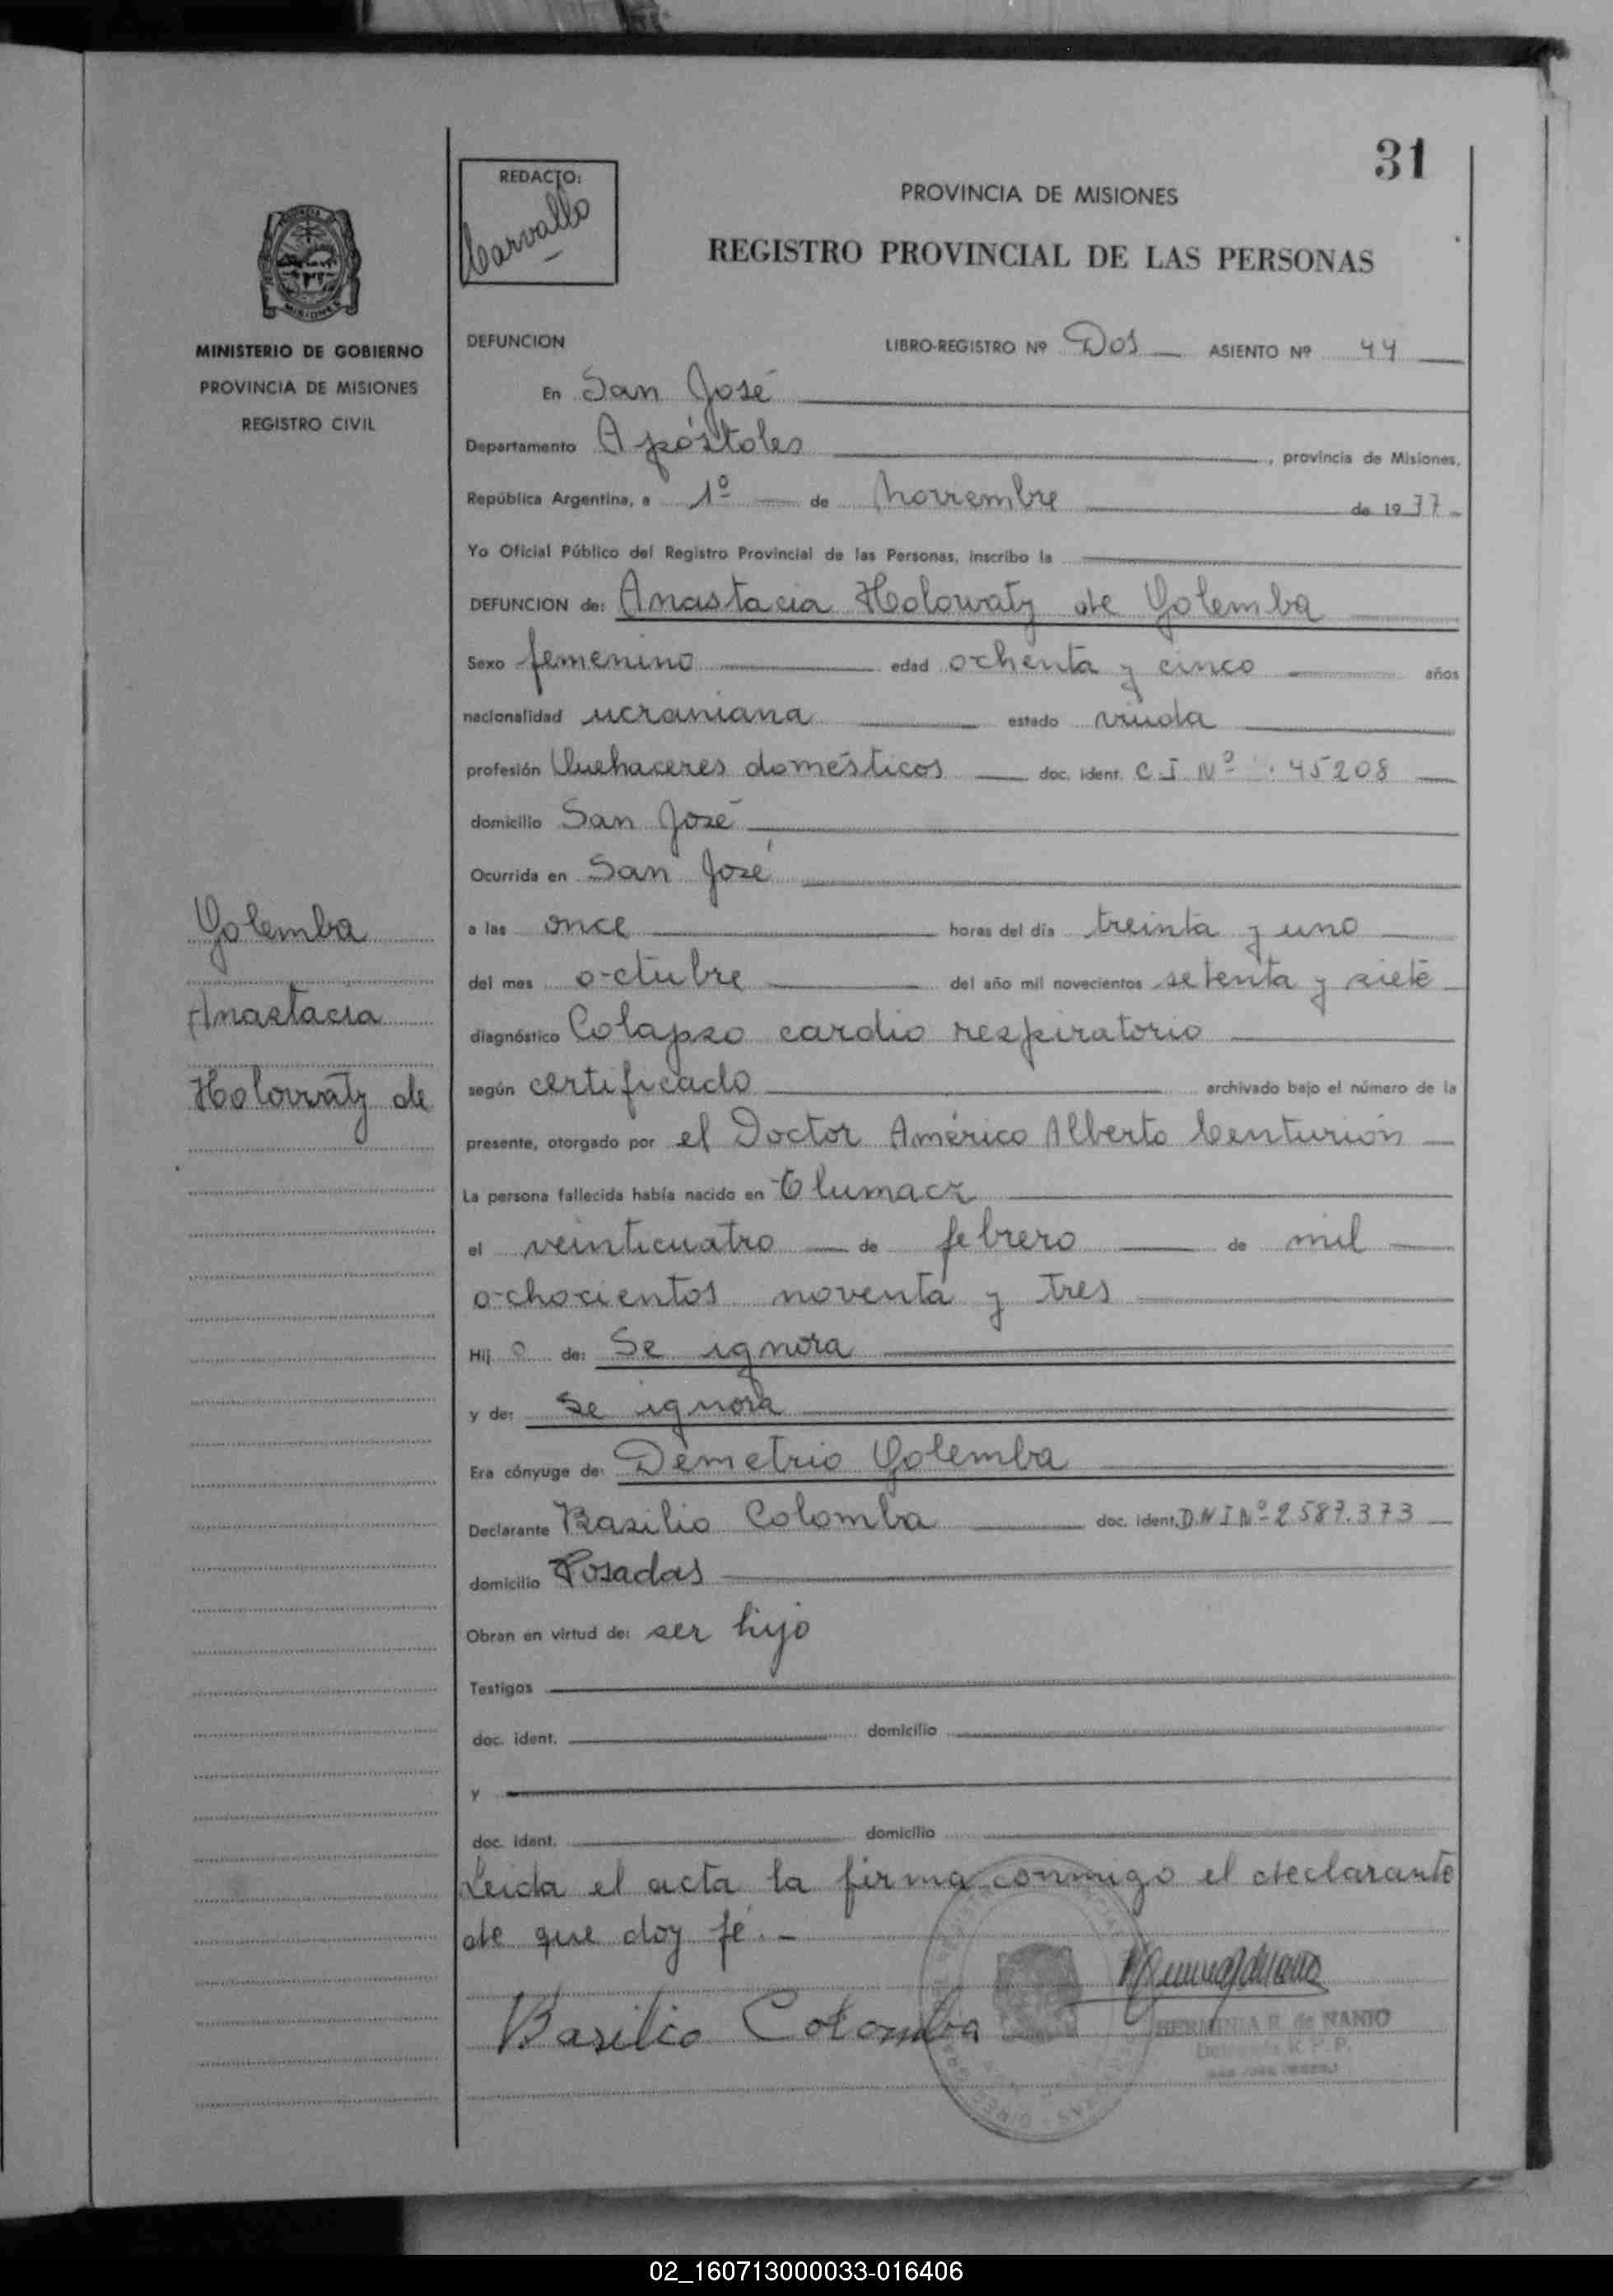 31
REDACTO:
Carvallo
PROVINCIA DE MISIONES
REGISTRO PROVINCIAL DE LAS PERSONAS
MISIONES
MINISTERIO DE GOBIERNO
PROVINCIA DE MISIONES
REGISTRO CIVIL
DEFUNCION LIBRO-REGISTRO Nº Dos ASIENTO Nº 44
En San José
Departamento Apóstoles, provincia de Misiones,
República Argentina, a 1º de noviembre de 1977
Yo Oficial Público del Registro Provincial de las Personas, inscribo la
DEFUNCION de: Anastacia Holowaty de Golemba
Sexo femenino edad ochenta y cinco años
nacionalidad ucraniana estado viuda
profesión Quehaceres domésticos doc. ident. C.I Nº 45208
domicilio San José
Ocurrida en San José
Golemba
Anastacia
Holowaty de
a las once horas del día treinta y uno
del mes octubre del año mil novecientos setenta y siete
diagnóstico Colapso cardio respiratorio
según certificado archivado bajo el número de la
presente, otorgado por el Doctor Américo Alberto Centurión
La persona fallecida había nacido en Tlumacz
el veinticuatro de febrero de mil
ochocientos noventa y tres
Hij a de: Se ignora
y de: Se ignora
Era cónyuge de: Demetrio Golemba
Declarante Basilio Colomba doc. ident. D.N I Nº 2587.373
domicilio Posadas
Obran en virtud de: ser hijo
Testigos
doc. ident. domicilio
y
doc. ident. domicilio
Leida el acta la firma conmigo el declarante
de que doy fé.-
Basilio Colomba
HERMINIA R. de NANIO
02_160713000033-016406